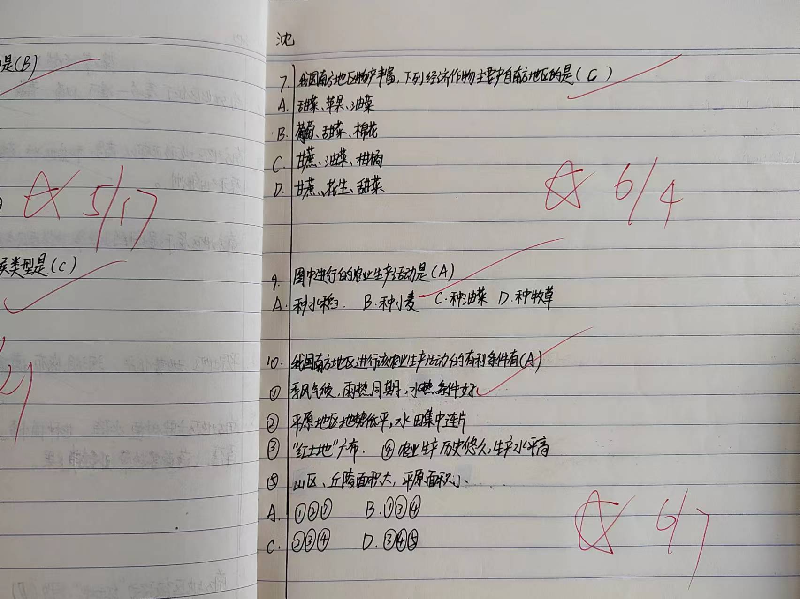 是(B)
5/17
类型是(C)
沈
7. 我国南方地区物产丰富,下列经济作物主要产自南方地区的是(C)
A. 甜菜、苹果、油菜
B. 葡萄、甜菜、棉花
C. 甘蔗、油菜、柑橘
D. 甘蔗、花生、甜菜
6/4
9. 图中进行的农业生产活动是(A)
A. 种水稻 B. 种小麦 C. 种油菜 D. 种牧草
10. 我国南方地区进行该农业生产活动的有利条件有(A)
① 季风气候,雨热同期,水热条件好
② 平原地区地势低平,水田集中连片
③ "红土地"广布. ④ 农业生产历史悠久,生产水平高
⑤ 山区、丘陵面积大,平原面积小......
A. ①②⑤ B. ①③④
C. ②③④ D. ③④⑤
6/7